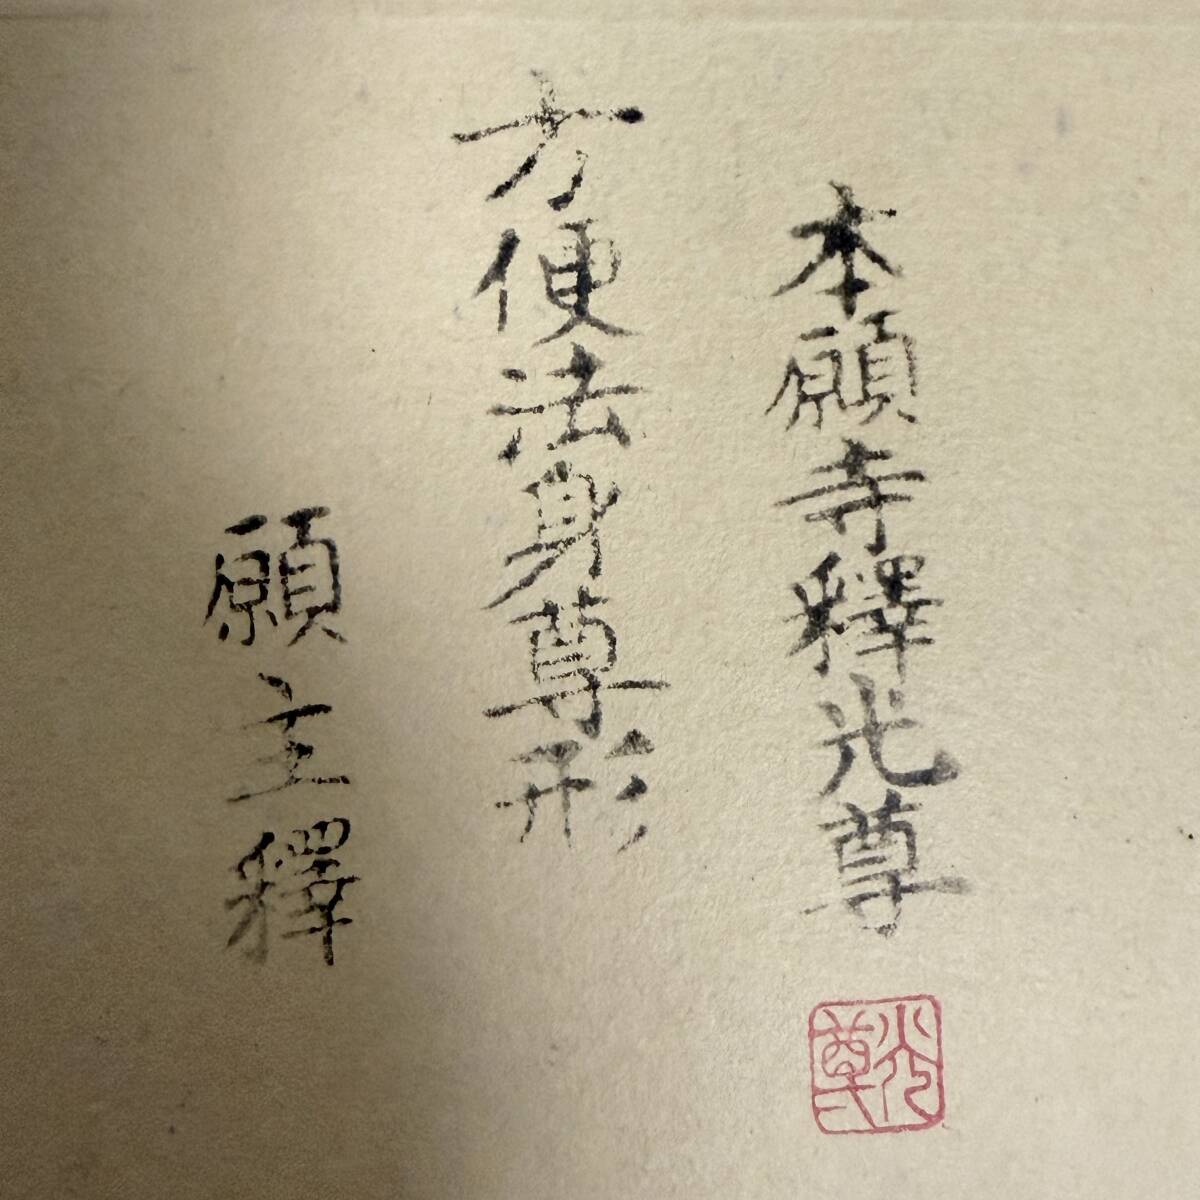 本願寺釋光尊
光尊
方便法身尊形
願主釋